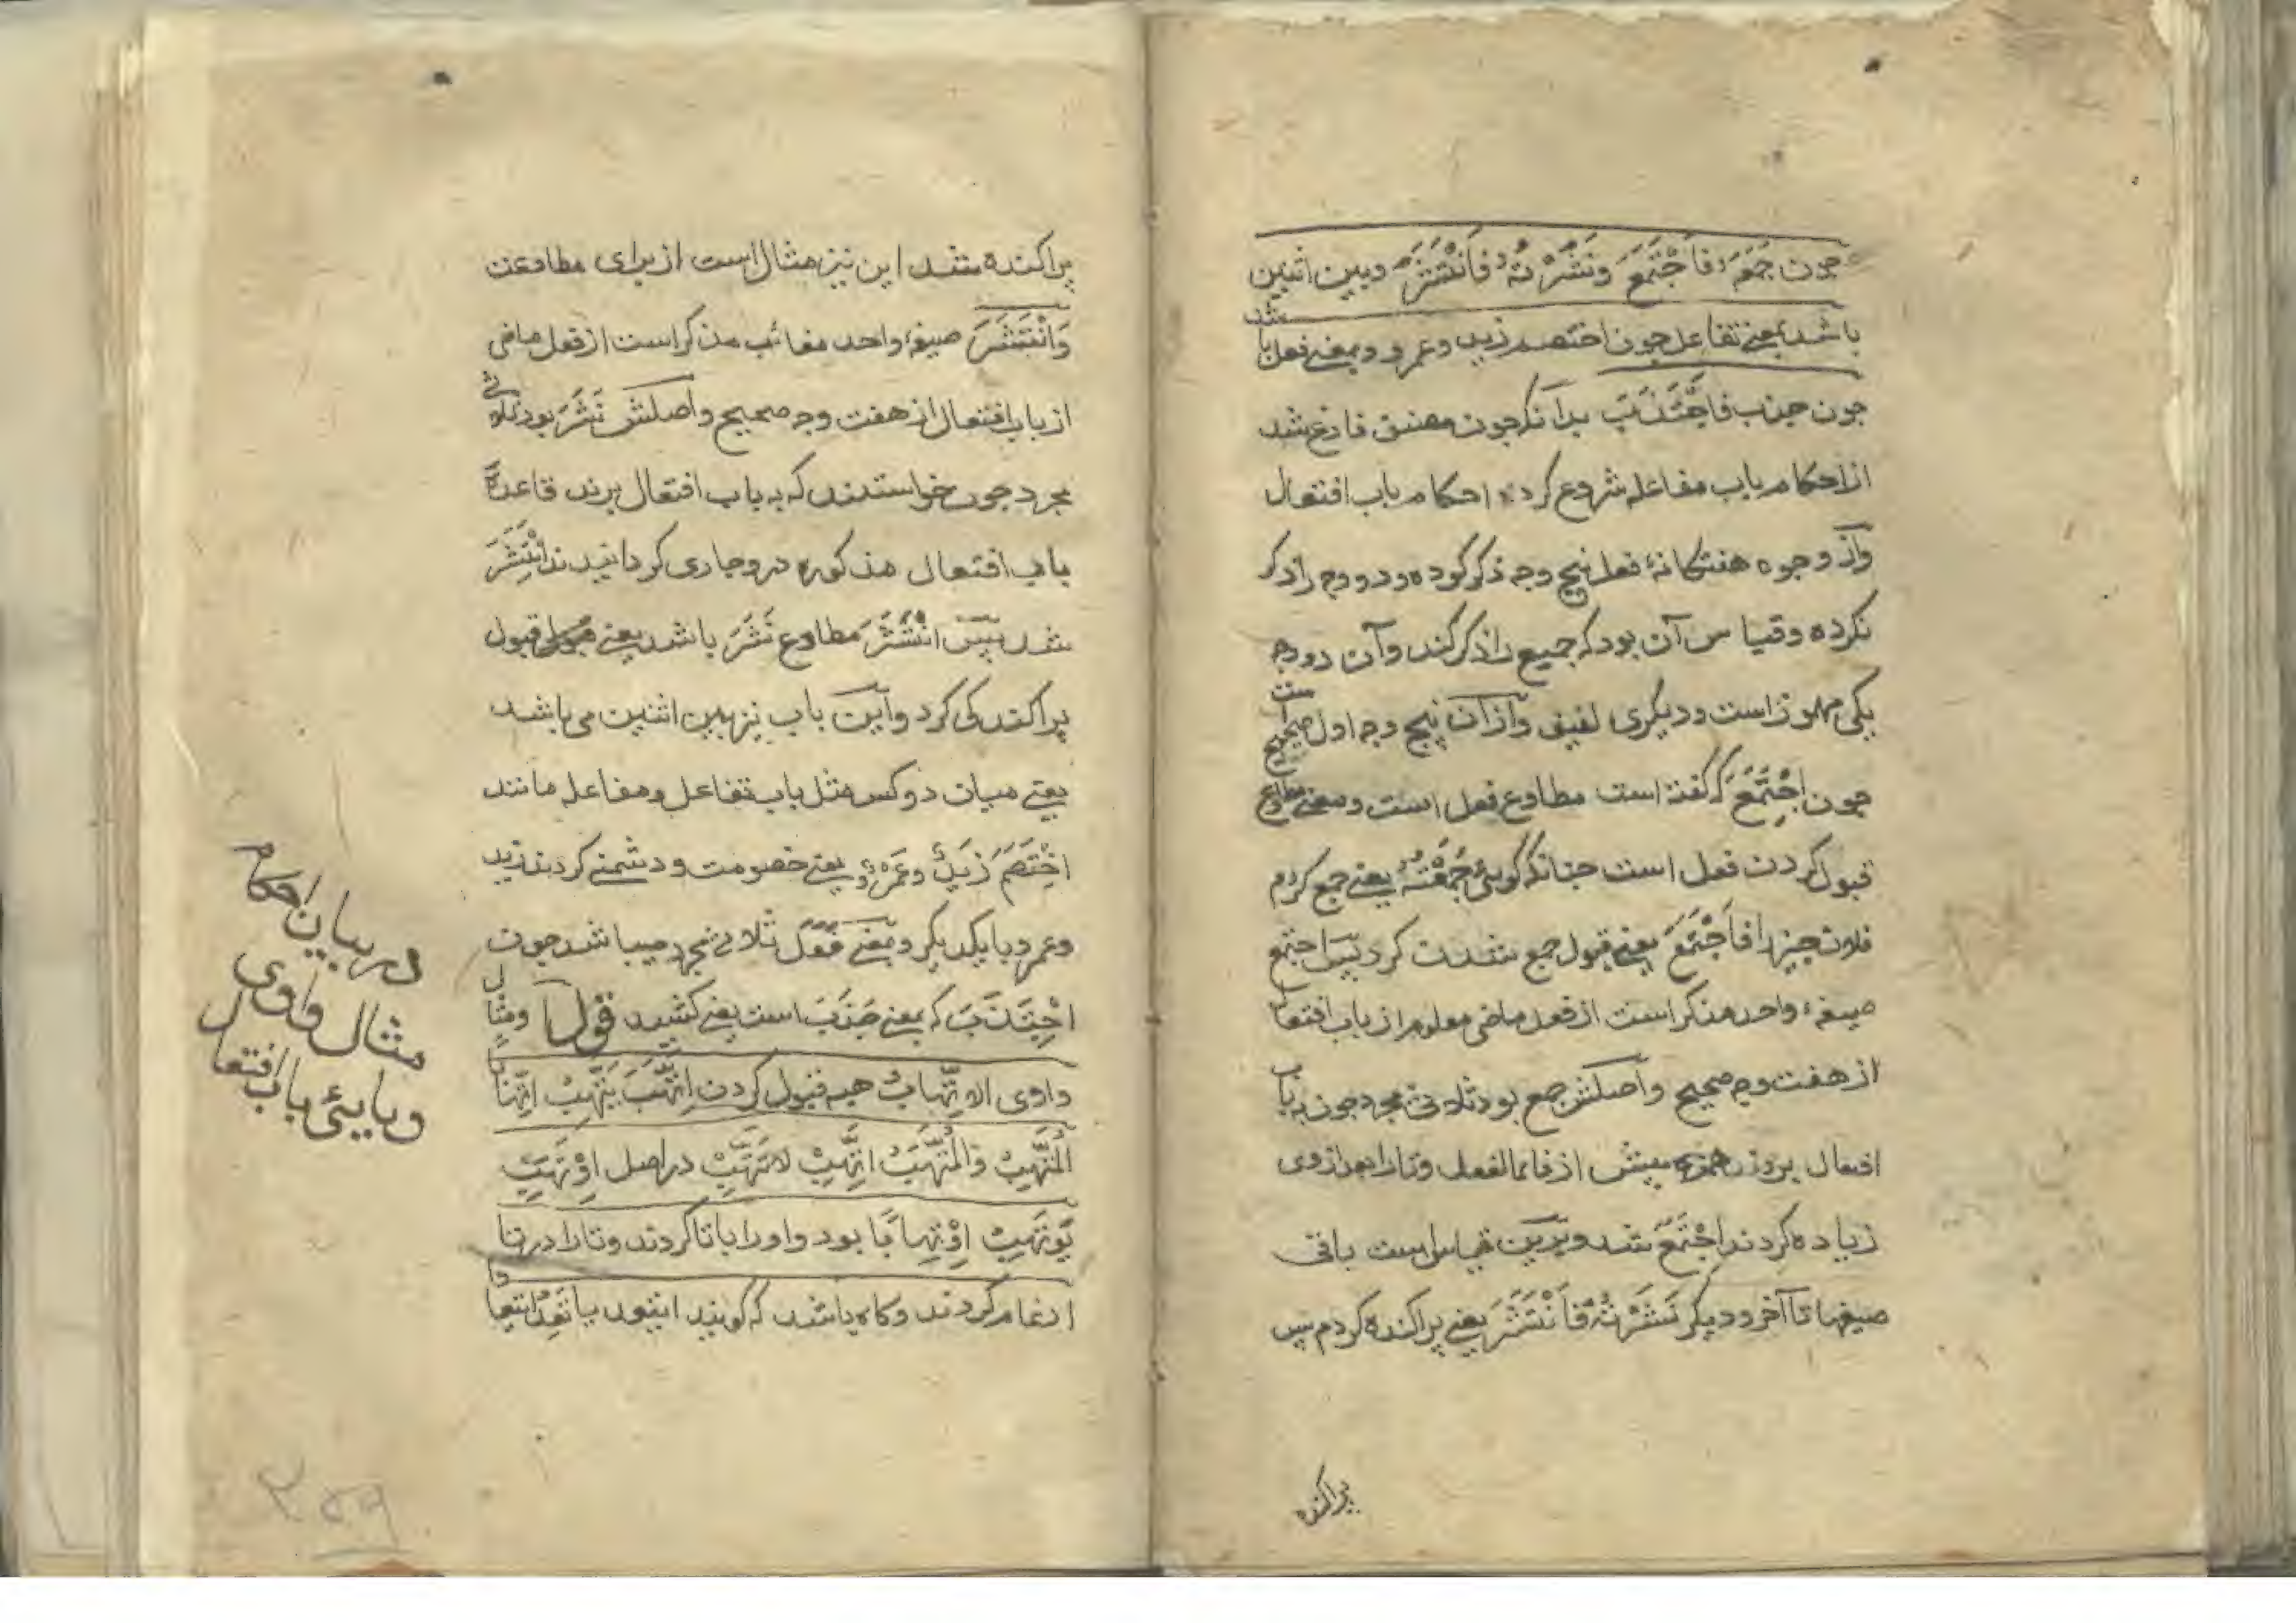 چون جَمَعَهُ فَاجْتَمَعَ وَنَشَرْتُهُ فَانْتَشَرَ وبین اثنین
باشد بمعنی تفاعل چون اختصم زید وعمرو وبمعنی فعل باشد
چون جذب فَاجْتَذَبَ بدانکه چون مصنف فارغ شد
از احکام باب مفاعله شروع کرد در احکام باب افتعال
واز وجوه هفتگانهٔ فعل پنج وجه ذکر کوده ودو وجه را ذکر
نکرده وقیاس آن بود که جمیع را ذکر کند وآن دو وجه
یکی مهموز است ودیکری لفیف واز آن پنج وجه اول صحیح است
چون اِجْتَمَعَ که گفته است مطاوع فعل است ومعنی مطاوع
قبول کردن فعل است چنانکه گویئ جَمَعْتُهُ یعنی جمع کردم
فلان چیز را فَاجْتَمَعَ یعنی قبول جمع شدن کرد پس اجتمع
صیغهٔ واحد مذکر است از فعل ماضی معلوم از باب افتعال
از هفت وجه صحیح واصلش جمع بود ثلاثی مجرد چون به باب
افتعال بردند همزه پیش از فاء الفعل وتا را بعد از وی
زیاده کردند اِجْتَمَعَ شد وبرین قیاس است باقی
صیغها تا آخر ودیکر نَشَرْتُهُ فَانْتَشَرَ یعنی پراکنده کردم پس
پراکنده
پراکنده شد این نیز مثال است از برای مطاوعت
وَانْتَشَرَ صیغهٔ واحد مغائب مذکر است از فعل ماضی
از باب افتعال از هفت وجه صحیح واصلش نَشَرَ بود ثلاثی
مجرد چون خواستند که به باب افتعال برند قاعدهٔ
باب افتعال مذکوره در وجاری کردانیدند اِنْتَشَرَ
شد پس انْتَشَرَ مطاوع نَشَرَ باشد یعنی قبول
پراکندکی کرد واین باب نیز بین اثنین می باشد
یعنی میان دو کس مثل باب تفاعل ومفاعله مانند
اخْتَصَمَ زَیدٌ وعَمْرٌو یعنی خصومت ودشمنی کردند زید
وعمرو با یکدیکر وبمعنی فَعَلَ ثلاثی مجرد میباشد چون
اجْتَذَبَ که بمعنی جَذَبَ است یعنی کشید قوله ومثال
واوی الاتِّهابُ هبه قبول کردن اِتَّهَبَ یَتَّهِبُ اِتِّهَابًا
المُتَّهِبُ وَالْمُتَّهَبُ اتَّهِبْ لا تَتَّهِبْ در اصل اِوْتَهَبَ
یَوْتَهِبُ اِوْتِهابًا بود واو را با تا کردند وتا را در تا
ادغام کردند وکاه باشد که کویند ایتعد یاتَعِدُ ایتعادًا
در بیان احکام
مثال واوی
ویایئ باب افتعال
۲۵۹